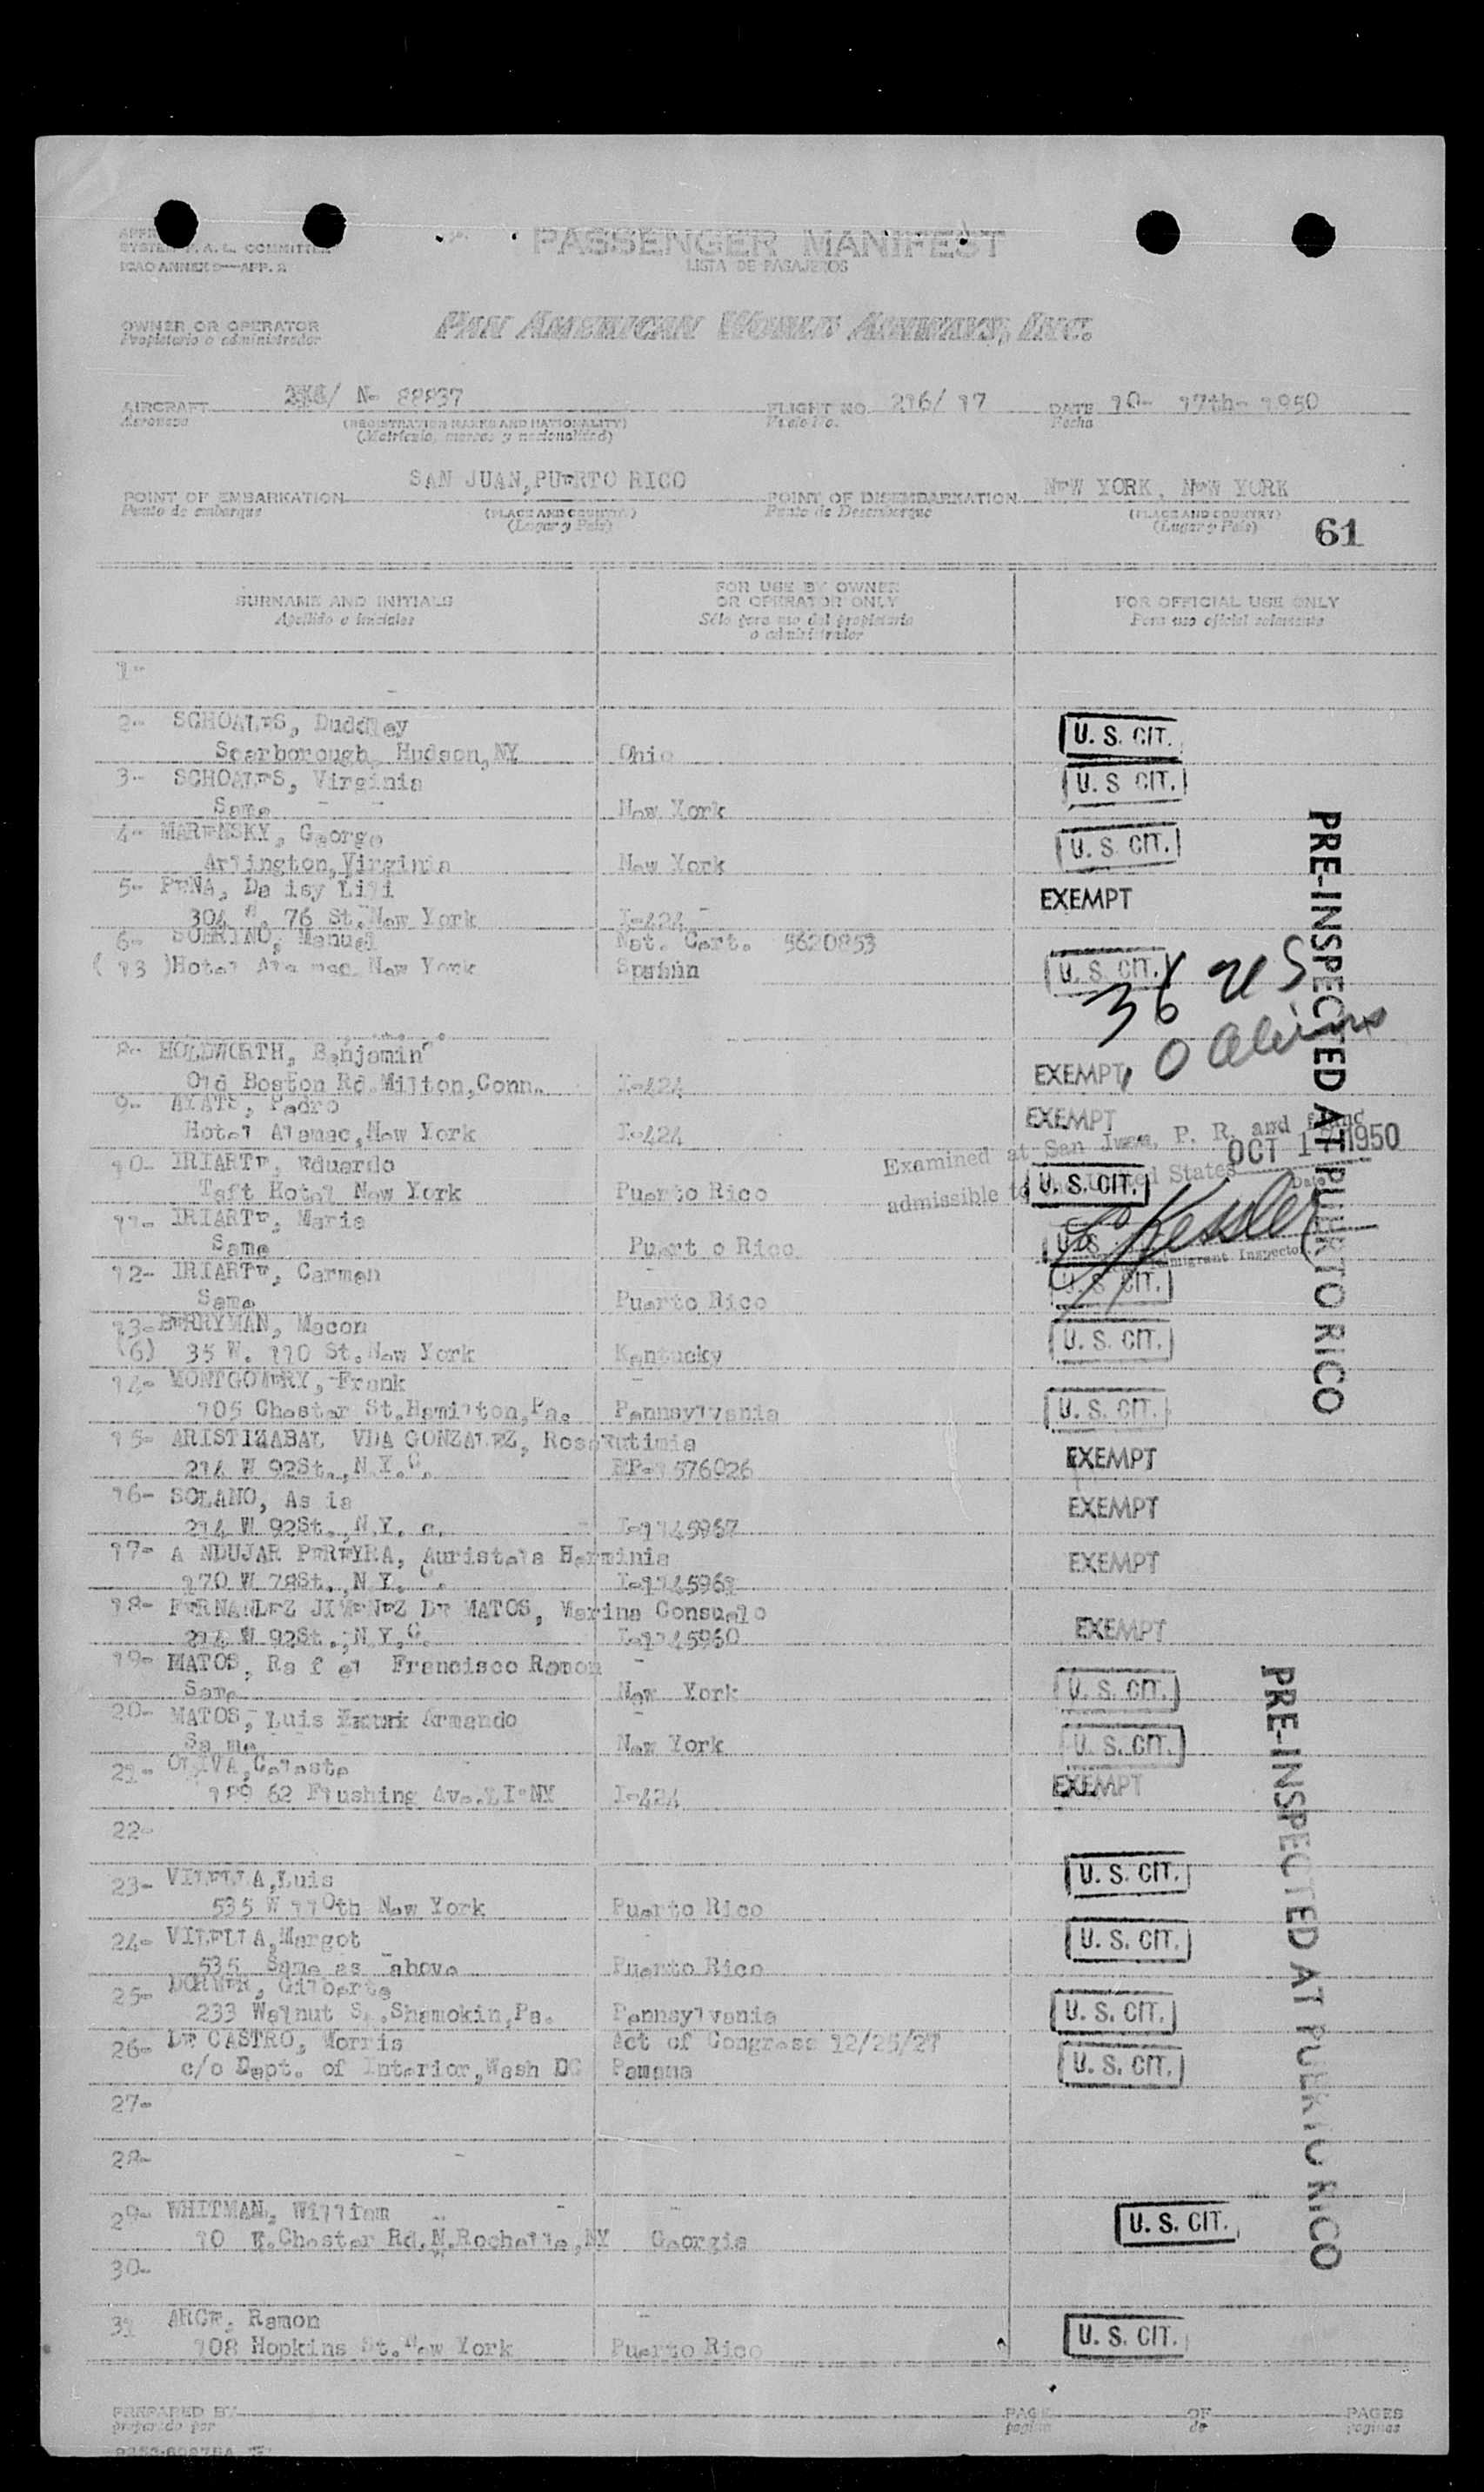 PASSENGER MANIFEST
LISTA DE PASAJEROS
SYSTEM A. L. COMMITTEE
ICAO ANNEX 9—APP. 2
OWNER OR OPERATOR
Propietario o administrador
PAN AMERICAN WORLD AIRWAYS, INC.
AIRCRAFT N- 88837 FLIGHT NO. 216/ 17 DATE 10- 17th- 1950
Aeronave (REGISTRATION MARKS AND NATIONALITY) Vuelo No. Fecha
(Matrícula, marcas y nacionalidad)
POINT OF EMBARKATION SAN JUAN,PUERTO RICO POINT OF DISEMBARKATION NEW YORK, NEW YORK
Punto de embarque (PLACE AND COUNTRY) Punto de Desembarque (PLACE AND COUNTRY)
(Lugar y País) (Lugar y País)
61
SURNAME AND INITIALS FOR USE BY OWNER OR OPERATOR ONLY FOR OFFICIAL USE ONLY
Apellido e iniciales Sólo para uso del propietario o administrador Para uso oficial solamente
1-
2- SCHOALES, Duddley
Scarborough, Hudson,NY Ohio U. S. CIT.
3- SCHOALES, Virginia
Same New York U. S. CIT.
4- MARENSKY, George
Arlington,Virginia New York U. S. CIT.
5- PEÑA, Da isy Lili
304 76 St. New York I-424 EXEMPT
6- SOBRINO, Manuel Nat. Cert. 5620853
( 13 )Hotel New York U. S. CIT.
36 US
0 aliens
8- HOLDWORTH, Benjamin
Old Boston Rd.Milton,Conn. I-424 EXEMPT
9- AYATS, Pedro
Hotel Alamac,New York I-424 EXEMPT
Examined at San Juan, P. R. and found
admissible to the United States
OCT 17 1950
Date
Kessler
Immigrant Inspector
10- IRIARTE, Eduardo
Taft Hotel New York Puerto Rico U. S. CIT.
11- IRIARTE, Maria
Same Puert o Rico U. S.
12- IRIARTE, Carmen
Same Puerto Rico U. S. CIT.
13- BERRYMAN, Macon
(6) 35 W. 110 St.New York Kentucky U. S. CIT.
14- MONTGOMERY, Frank
105 Chester St.Hamilton,Pa. Pennsylvania U. S. CIT.
15- ARISTIZABAL VDA GONZALEZ, Rosa
214 W 92St.,N.Y.C. 576026 EXEMPT
16- SOLANO, As ia
214 W 92St.,N.Y. C. I-1145967 EXEMPT
17- A NDUJAR PEREYRA, Auristela Herminia
170 W 78St.,N.Y. C. I-1145961 EXEMPT
18- FERNANDEZ JIMENEZ DE MATOS, Marina Consuelo
214 W 92St.,N.Y.C. I-1145960 EXEMPT
19- MATOS, Ra f el Francisco Ramon
Same New York U. S. CIT.
20- MATOS, Luis Armando
Sa me New York U. S. CIT.
21- OLIVA,Celeste
189 62 Flushing Ave.LI-NY I-424 EXEMPT
22-
23- VILELLA,Luis
535 W 110th New York Puerto Rico U. S. CIT.
24- VILELLA,Margot
535 Same as above Puerto Rico U. S. CIT.
25- DORMER, Gilberta
233 Walnut St.Shamokin,Pa. Pennsylvania U. S. CIT.
26- DE CASTRO, Morris Act of Congress 12/25/27
c/o Dept. of Interior,Wash DC Panama U. S. CIT.
27-
28-
29- WHITMAN, William
10 E.Chester Rd.N.Rochelle,NY Georgia U. S. CIT.
30-
31 ARCE, Ramon
108 Hopkins St.New York Puerto Rico U. S. CIT.
PRE-INSPECTED AT PUERTO RICO
PRE-INSPECTED AT PUERTO RICO
PREPARED BY PAGE OF PAGES
preparado por página de páginas